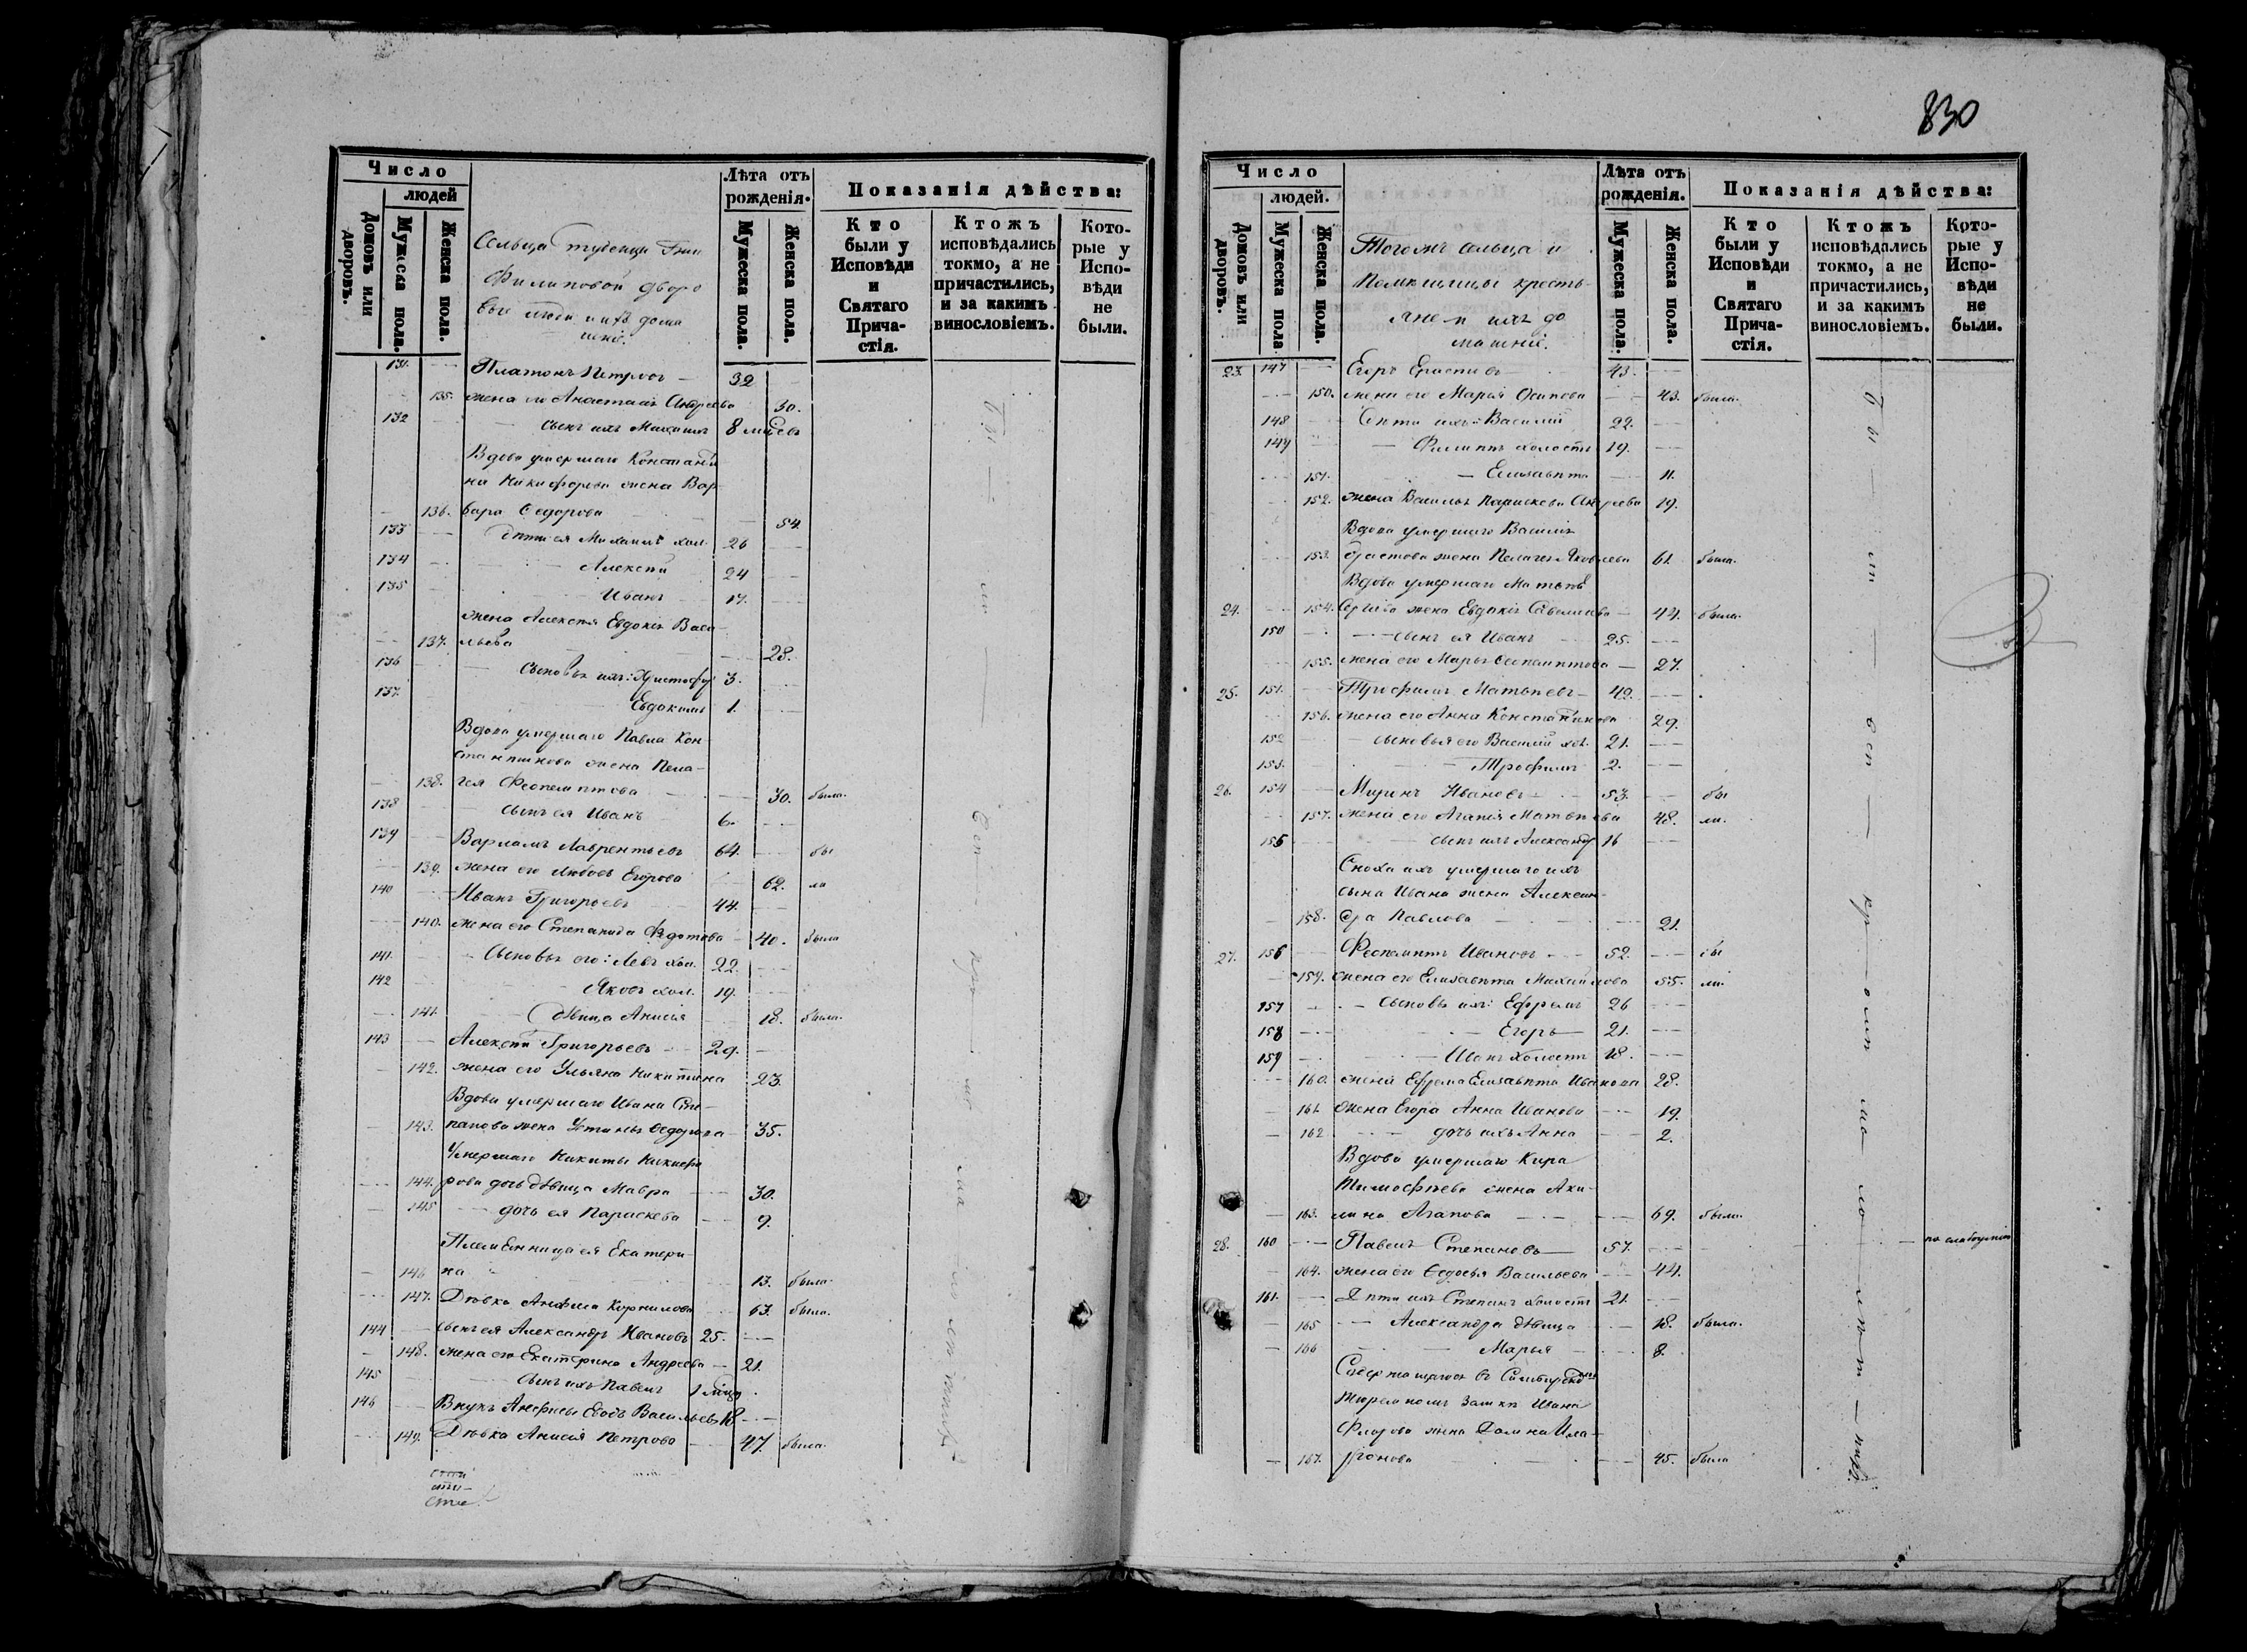 830
Число
людей
Домовъ или дворовъ.
Мужеска пола.
Женска пола.
Сельца
Филиповой дворо
вые люди и ихъ дома
шніе.
Лѣта отъ рожденія.
Мужеска пола.
Женска пола.
Показанія дѣйства:
Кто были у Исповѣди и Святаго Причастія.
Ктожъ исповѣдались токмо, а не причастились, и за какимъ винословіемъ.
Которые у Исповѣди не были.
131. Платонъ Петровъ 32
135. жена его Анастасія Андреева 30.
132 сынъ ихъ Михаилъ 8 мцевъ
Вдова умершаго Константи
на Никифорова жена Вар
136. вара Ѳедорова 54.
133 дѣти ея Михаилъ хол. 26
134 Алексѣй 24
135 Иванъ 17.
жена Алексѣя Евдокія Васи
137. льева 23.
136 сыновья ихъ: Христофоръ 3.
137. Евдокимъ 1.
Вдова умершаго Павла Кон
стантинова жена Пела-
138. гея Феопемптова 30. была.
138 сынъ ея Иванъ 6.
139 Варламъ Лаврентьевъ 64. бы
139. жена его Любовь Егорова 62. ли
140 Иванъ Григорьевъ 44.
140. жена его Степанида Федотова 40. была
141. Сыновья его: Левъ хол. 22.
142 Яковъ хол. 19.
141. дѣвица Анисья 18. была.
143 Алексѣй Григорьевъ 29.
142. жена его Ульяна Никитина 23.
Вдова умершаго Ивана Сте-
143. панова жена Устинья Ѳедорова 35.
Умершаго Никиты Никифо
144. рова дочь дѣвица Мавра 30.
145 дочь ея Параскева 9.
Племянница ея Екатери-
146 на 13. была.
147. Дѣвка Анфиса Корнилова 63. была.
144 сынъ ея Александръ Ивановъ 25.
148. жена его Екатерина Андреева 21.
145 сынъ ихъ Павелъ 1 мцъ
146 Внукъ Анфисы Васильевъ 18
149. Дѣвка Анисія Петрова 47. была.
Число
людей.
Домовъ или дворовъ.
Мужеска пола
Женска пола.
Тогожъ сельца и
Помѣщицы кресть-
яне и ихъ до
машніе.
Лѣта отъ рожденія.
Мужеска пола.
Женска пола.
Показанія дѣйства:
Кто были у Исповѣди и Святаго Причастія.
Ктожъ исповѣдались токмо, а не причастились, и за какимъ винословіемъ.
Которые у Исповѣди не были.
23. 147 Егоръ Ерастовъ 43.
150. жена его Марья Осипова 43. была.
148 Дѣти ихъ: Василій 22.
149 Филиппъ холостъ 19.
151. Елизавета 11.
152. жена Василья Параскева Андреева 19.
Вдова умершаго Василія
153. Ерастова жена Пелагея Яковлева 61. была.
Вдова умершаго Матвѣя
24. 154. Сергѣева жена Евдокія Савельева 44. была.
150 сынъ ея Иванъ 25.
155. жена его Марья Феопемптова 27.
25. 151. Трофимъ Матвѣевъ 42.
156. жена его Анна Константинова 29.
152 сыновья его Василій хол. 21.
153. Трофимъ 2.
26. 154 Миронъ Ивановъ 53. бы
157. жена его Агапія Матвѣева 48. ли.
155 сынъ ихъ Александръ 16
Сноха ихъ умершаго ихъ
сына Ивана жена Алексан-
158. дра Павлова 21.
27. 156 Феопемптъ Ивановъ 52. бы
159. жена его Елизавета Михайлова 55. ли.
157 сыновья ихъ: Ефремъ 26
158 Егоръ 21.
159 Иванъ холостъ 18.
160. жена Ефрема Елизавета Иванова 28.
161. жена Егора Анна Иванова 19.
162 дочь ихъ Анна 2.
Вдова умершаго Кира
Тимофѣева жена Аку-
163. лина Агапова 69. была.
28. 160 Павелъ Степановъ 57.
164. жена его Ѳедосья Васильева 44.
161. Дѣти ихъ Степанъ холостъ 21.
165 Александра дѣвица 18. была.
166 Марья 8.
Содержащагося въ Симбирскомъ
тюремномъ замкѣ Ивана
Флорова жена
167. 45. была